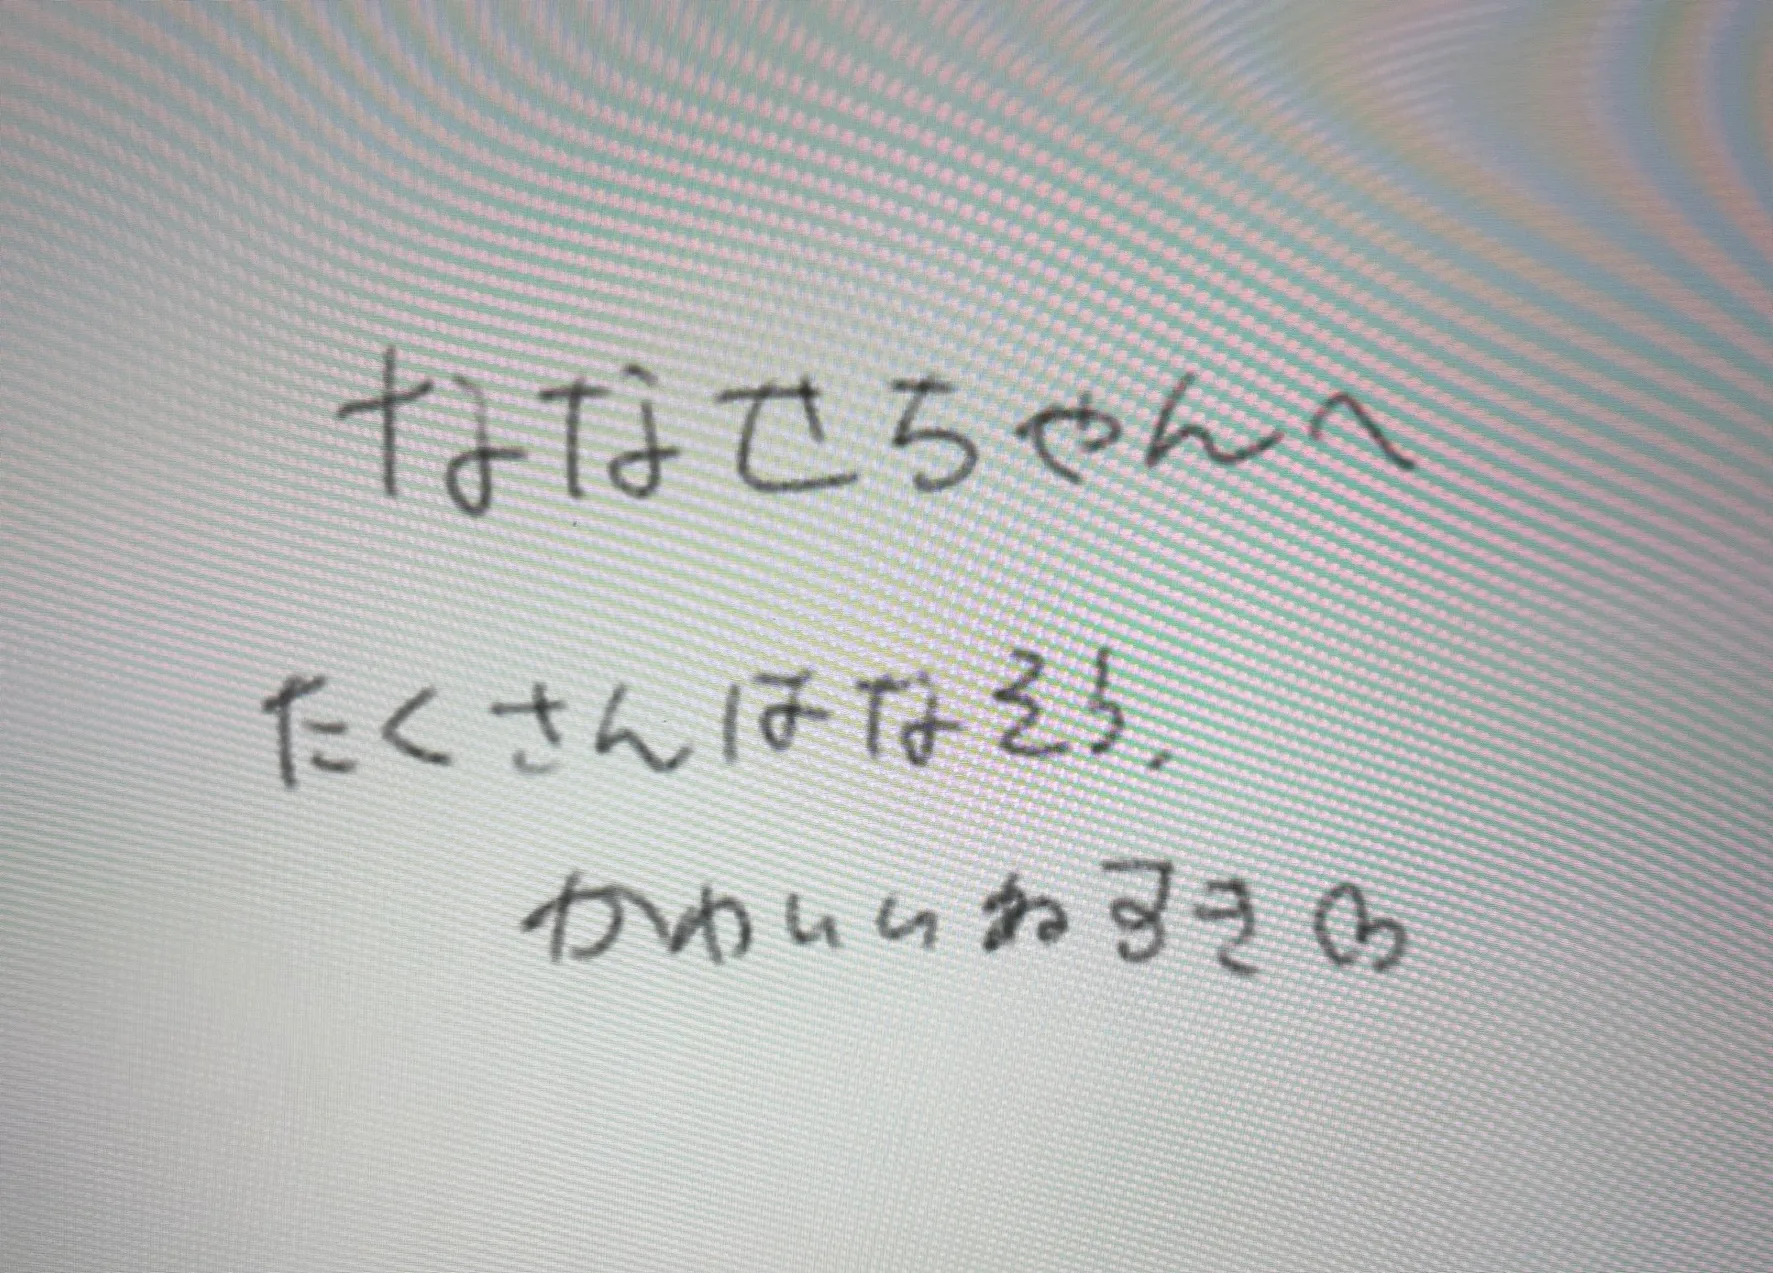 ななせちゃんへ
たくさんはなそう、
かわいいねすき